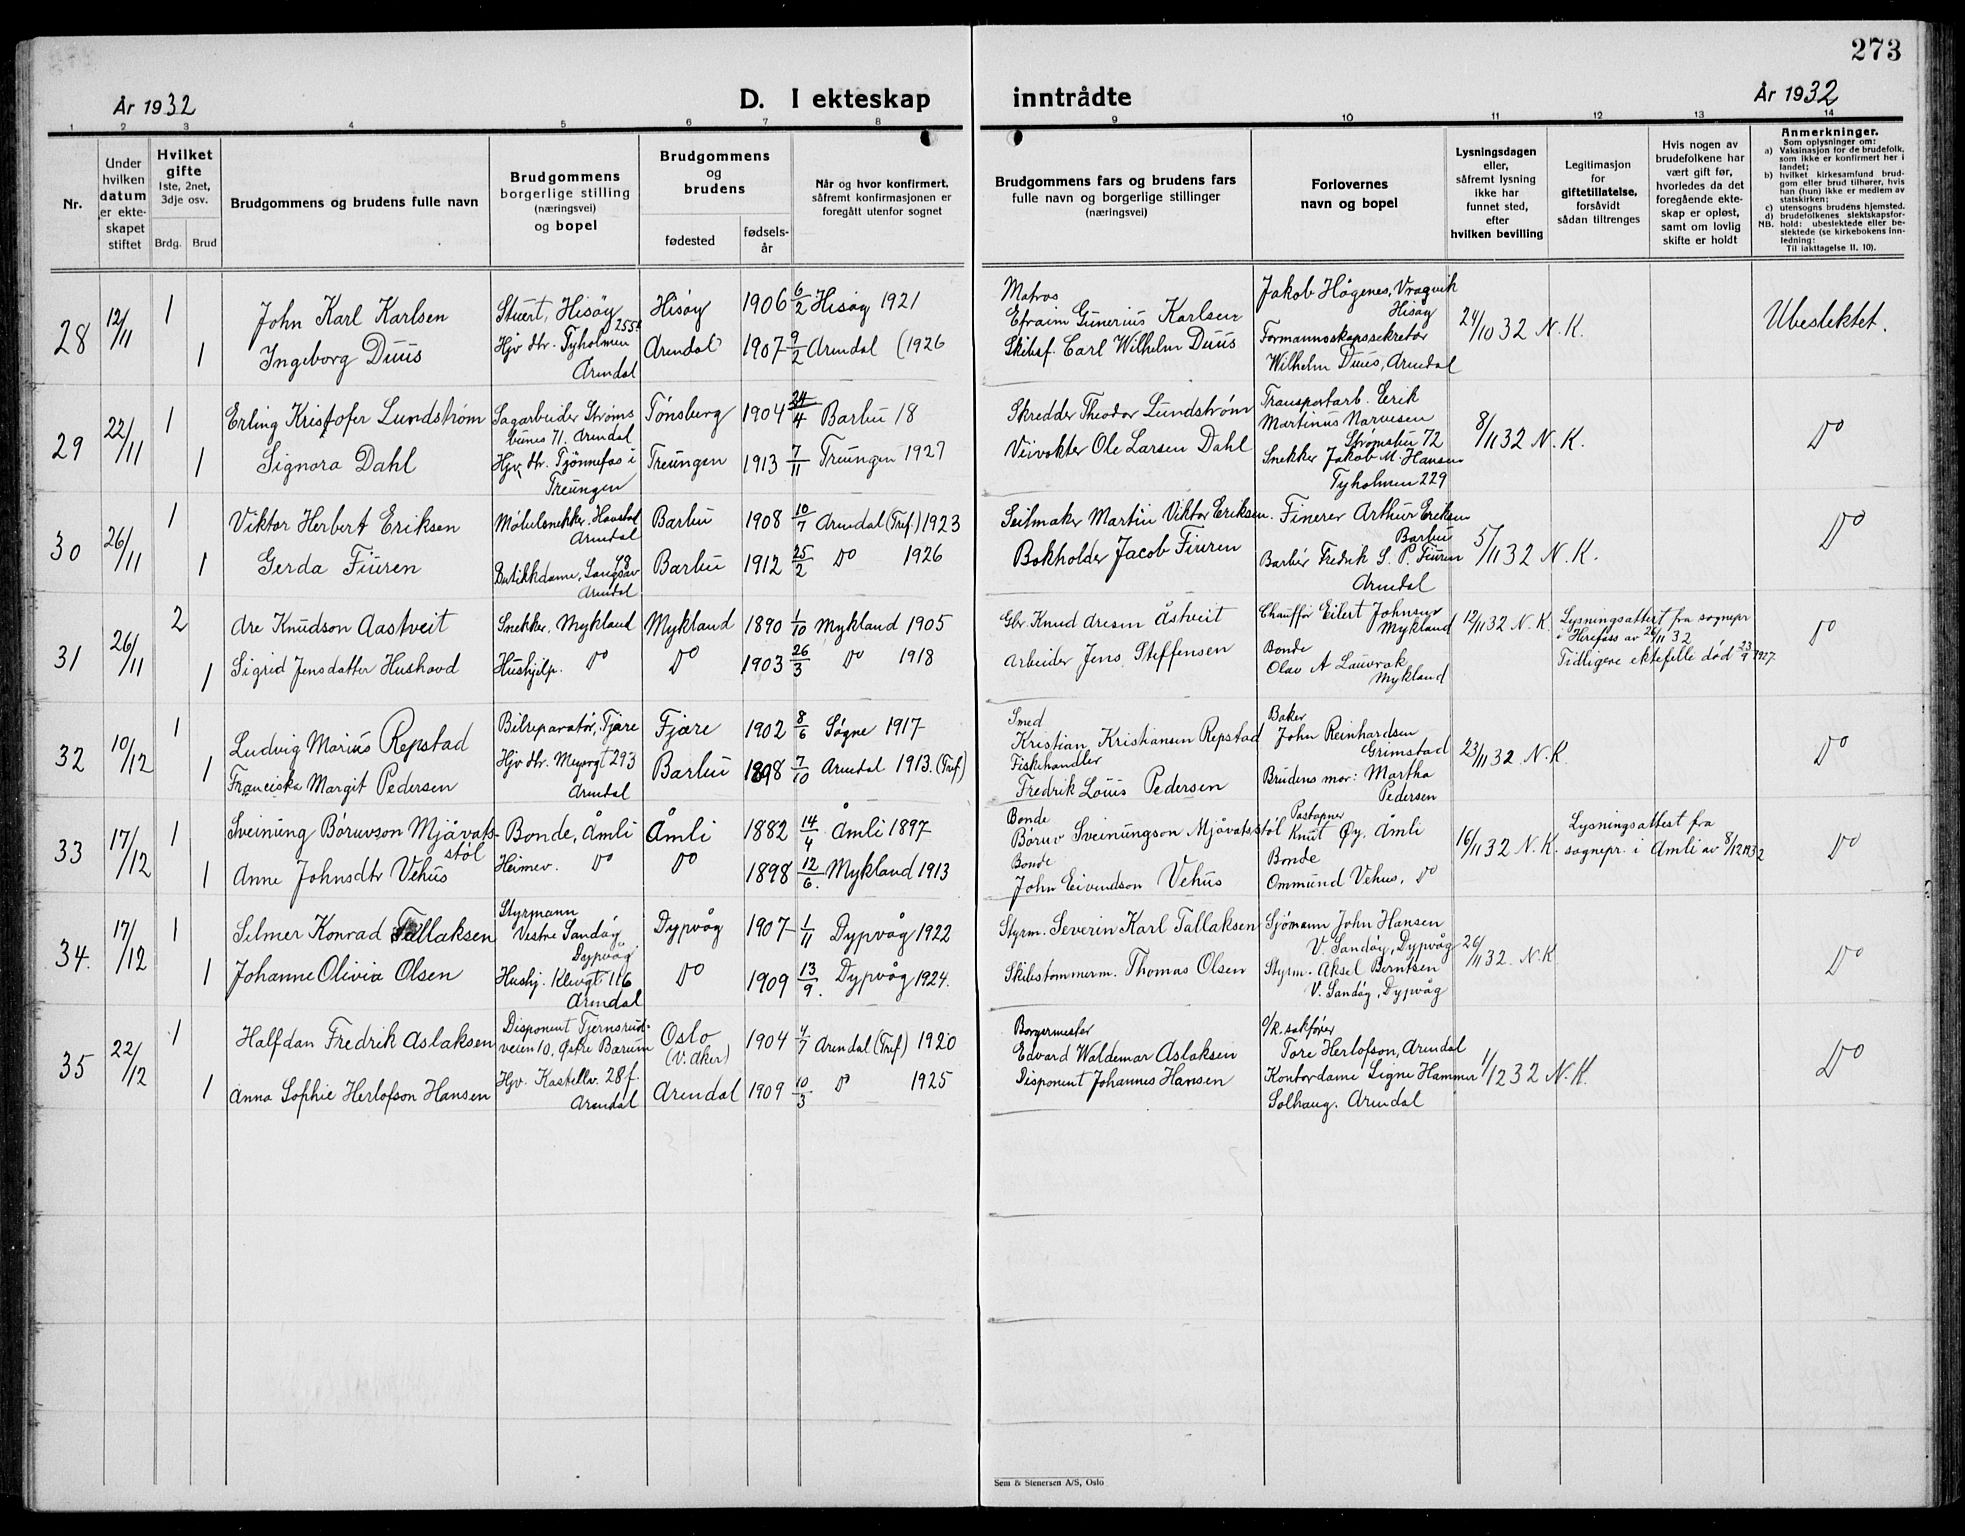 273
År 1932
D. I ekteskap inntrådte
År 1932
1 2 3 4 5 6 7 8 9 10 11 12 13 14
Nr.
Under
hvilken
datum
er ekte-
skapet
stiftet
Hvilket
gifte
1ste, 2net,
3dje osv.
Brdg. Brud
Brudgommens og brudens fulle navn
Brudgommens
borgerlige stilling
(næringsvei)
og bopel
Brudgommens
og
brudens
fødested
fødsels-
år
Når og hvor konfirmert,
såfremt konfirmasjonen er
foregått utenfor sognet
Brudgommens fars og brudens fars
fulle navn og borgerlige stillinger
(næringsvei)
Forlovernes
navn og bopel
Lysningsdagen
eller,
såfremt lysning
ikke har
funnet sted,
efter
hvilken bevilling
Legitimasjon
for
giftetillatelse,
forsåvidt
sådan tiltrenges
Hvis nogen av
brudefolkene har
vært gift før,
hvorledes da det
foregående ekte-
skap er opløst,
samt om lovlig
skifte er holdt
Anmerkninger.
Som oplysninger om:
a) Vaksinasjon for de brudefolk,
som ikke er konfirmert her i
landet;
b) hvilket kirkesamfund brud-
gom eller brud tilhører, hvis
han (hun) ikke er medlem av
statskirken;
c) utensogns brudens hjemsted.
d) brudefolkenes slektskapsfor-
NB. hold: ubeslektede eller be-
slektede (se kirkebokens inn-
ledning:
Til iakttagelse II, 10).
28 12/11 1 John Karl Karlsen Stuert, Hisøy Hisøy 1906 6/2 Hisøy 1921
1 Ingeborg Duus Hjv. hr. Tyholmen 255b
Arendal Arendal 1907 9/2 Arendal (1926
Matros
Efraim Gunerius Karlsen
Skibsf. Carl Wilhelm Duus
Jakob Hågenes, Vragvik
Hisøy
Formannsskapssekretær
Wilhelm Duus, Arendal
24/10 32 N.K.
Ubeslektet.
29 22/11 1 Erling Kristofer Lundstrøm Sagarbeider Strøms
bunes 71. Arendal Tønsberg 1904 24/4 Barbu 18
1 Signora Dahl Hjv. hr. Tjønnefos i
Treungen Treungen 1913 7/11 Treungen 1927
Skredder Theodor Lundstrøm
Veivokter Ole Larsen Dahl
Transportarb. Erik
Martinus Narvesen
Strømsbu 72
Snekker Jakob M. Hansen
Tyholmen 229
8/11 32 N.K.
Do
30 26/11 1 Viktor Herbert Eriksen Møbelsnekker. Havstad
Arendal Barbu 1908 10/7 Arendal (Tref.) 1923
1 Gerda Fiuren Butikkdame, Langsæv 48
Arendal Barbu 1912 25/2 Do 1926
Seilmaker Martin Viktor Eriksen.
Bokholder Jacob Fiuren
Finerer Arthur Eriksen
Barbu
Barbér Fredrik S. P. Fiuren
Arendal
5/11 32 N.K.
Do
31 26/11 2 Are Knudson Aastveit Snekker, Mykland Mykland 1890 1/10 Mykland 1905
1 Sigrid Jensdatter Hushovd Hushjelp. Do Do 1903 26/3 Do 1918
Gbr. Knud Aresen Åstveit
Arbeider Jens Steffensen
Chauffør Eilert Johnsen
Mykland
Bonde
Olav A Lauvrak
Mykland
12/11 32 N.K.
Lysningsattest fra sognepr
i Herefoss av 26/11 32
Tidligere ektefelle død 23/9 1927.
Do
32 10/12 1 Ludvig Marius Repstad Bilreparatør, Fjære Fjære 1902 8/6 Søgne 1917
1 Franciska Margit Pedersen Hjv. hr. Meyergt 293
Arendal Barbu 1898 7/10 Arendal 1913. (Tref)
Smed
Kristian Kristiansen Repstad
Fiskehandler
Fredrik Louis Pedersen
Baker
John Reinhardsen
Grimstad
Brudens mor: Martha
Pedersen
23/11 32. N.K.
Do
33 17/12 1 Sveinung Børuvson Mjåvats-
støl Bonde, Åmli Åmli 1882 14/4 Åmli 1897
1 Anne Johnsdtr Vehus Heimev. Do Do 1898 12/6. Mykland 1913
Bonde
Børuv Sveinungson Mjåvatsstøl
Bonde
John Eivindson Vehus
Postopner
Knut Øy. Åmli
Bonde
Ommund Vehus, Do
16/11 32 N.K.
Lysningsattest fra
sognepr. i Åmli av 8/12 1932
Do
34. 17/12 1 Selmer Konrad Tallaksen Styrmann
Vestre Sandøy
Dypvåg Dypvåg 1907 1/11 Dypvåg 1922
1 Johanne Olivia Olsen Hushj. Klevgt 116
Arendal Do 1909 13/9. Dypvåg 1924.
Styrm. Severin Karl Tallaksen
Skibstømmerm. Thomas Olsen
Sjømann John Hansen
V. Sandøy, Dypvåg
Styrm. Aksel Berntsen
V. Sandøy, Dypvåg
26/11 32. N.K.
Do
35 22/12 1 Halfdan Fredrik Aslaksen Disponent Tjernsrud-
veien 10, Østre Bærum Oslo
(V. Aker) 1904 4/7 Arendal (Tref) 1920
1 Anna Sophie Herlofson Hansen Hjv. Kastellv. 28 f.
Arendal Arendal 1909 10/3. Do 1925
Borgermester
Edvard Waldemar Aslaksen
Disponent Johannes Hansen
O/R. sakfører
Tore Herlofson, Arendal
Kontordame Signe Hammer
Solhaug. Arendal
1/12 32 N.K.
Do
Sem & Stenersen A/S, Oslo